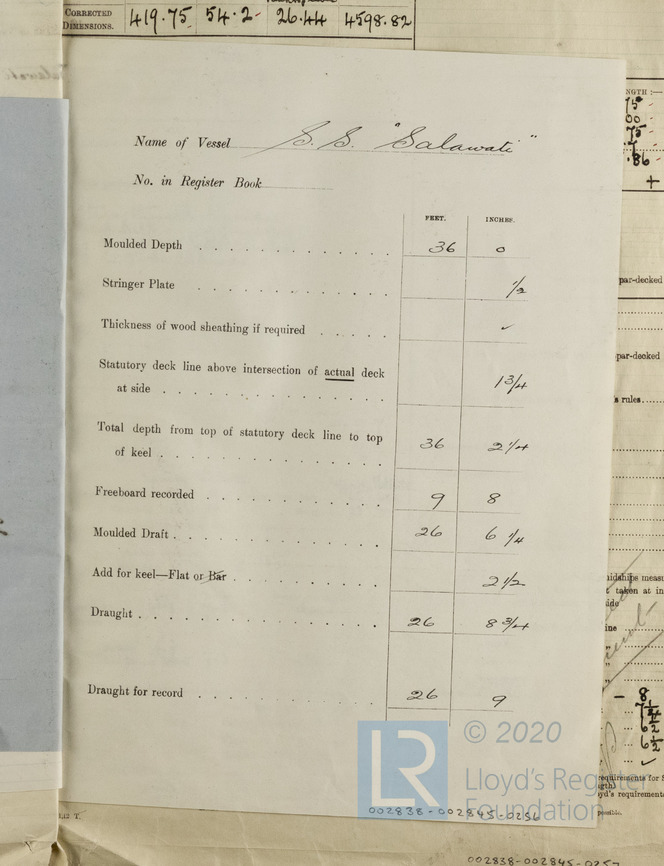 CORRECTED
DIMENSIONS. 419.75 54.2 26.44 4598.82
Name of Vessel S.S. "Salawati"
No. in Register Book
FEET. INCHES.
Moulded Depth 36 0
Stringer Plate 1/2
Thickness of wood sheathing if required ✓
Statutory deck line above intersection of actual deck
at side 1 3/4
Total depth from top of statutory deck line to top
of keel 36 2 1/4
Freeboard recorded 9 8
Moulded Draft 26 6 1/4
Add for keel—Flat or Bar 2 1/2
Draught 26 8 3/4
Draught for record 26 9
© 2020
LR
Lloyd's Register
Foundation
002838-002845-0256
002838-002845-0257
NGTH :—
par-decked
par-decked
s rules